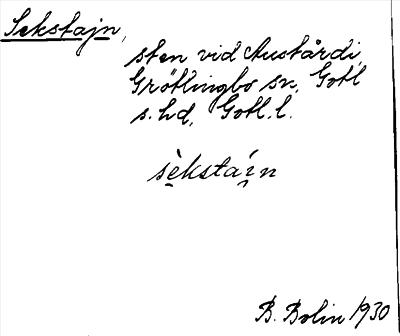 Sekstajn,
sten vid Austårdi,
Grötlingbo sn, Gotl
s. hd, Gotl. l.
sèkstaín
B. Bolin 1930